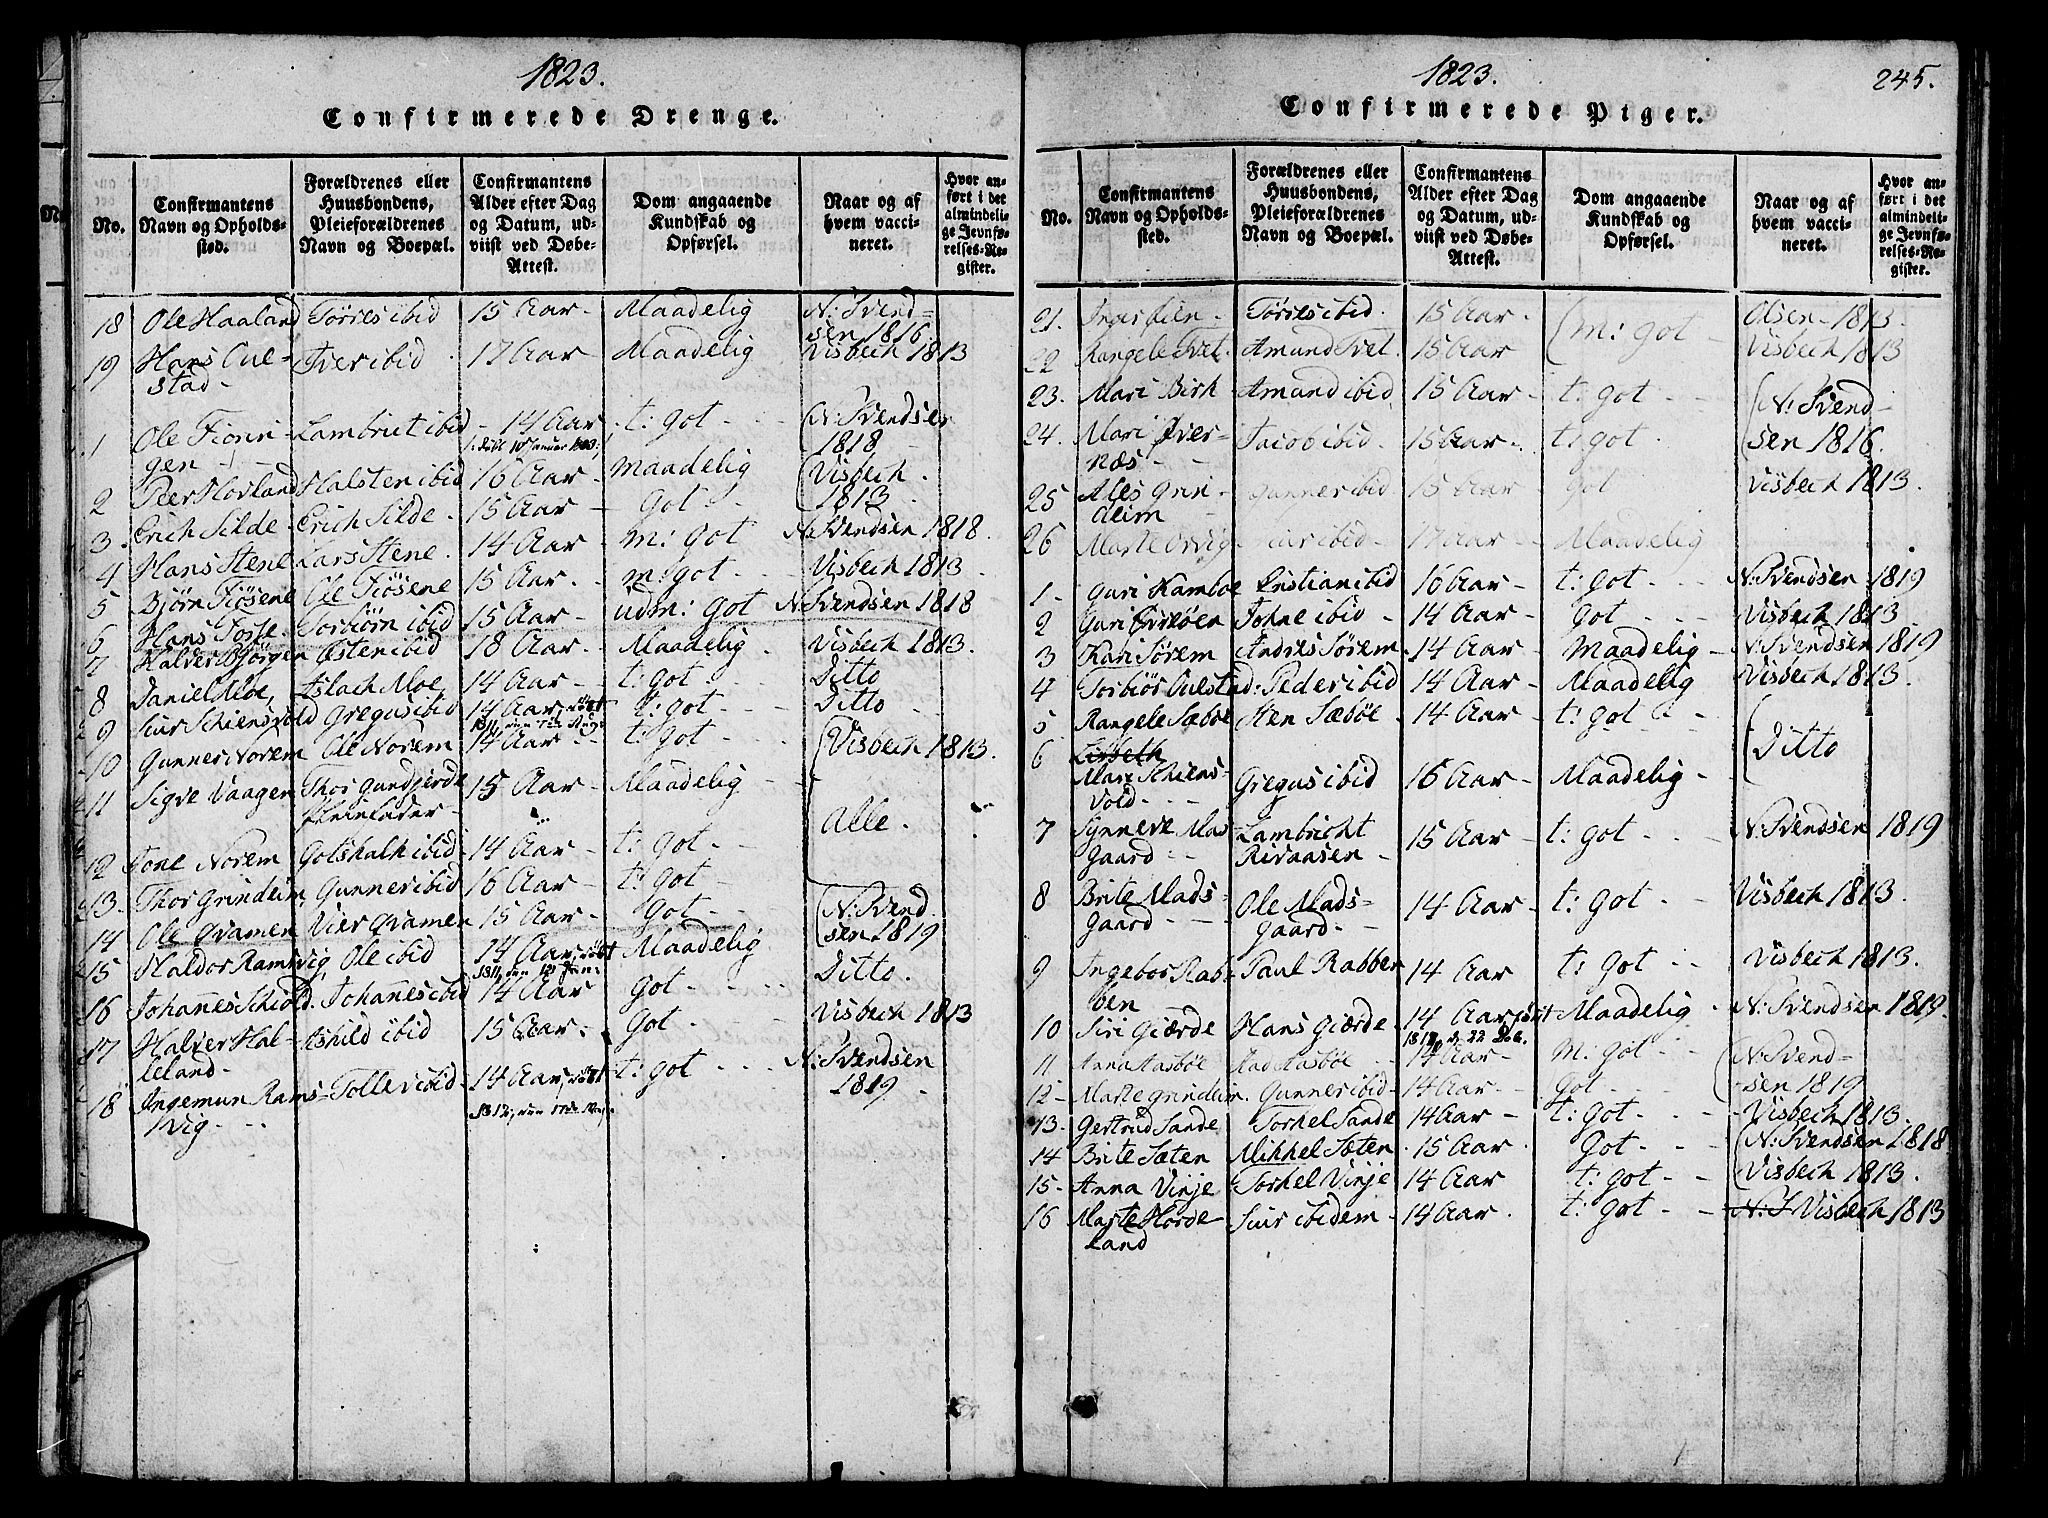 1823.
Confirmerede Drenge.
No.
Confirmantens Navn og Opholdssted.
Forældrenes eller Huusbondens, Pleieforældrenes Navn og Boepæl.
Confirmantens Alder efter Dag og Datum, udviist ved Døbe-Attest.
Dom angaaende Kundskab og Opførsel.
Naar og af hvem vaccineret.
Hvor anført i det almindelige Jevnførelses-Register.
18 Ole Haaland Torres ibid 15 Aar - Maadelig N: Svend-
sen 1816
19 Hans Cul- Iver ibid 17 Aar - Maadelig Visbech 1813
stad -
1 Ole Fionn- Lambrict ibid - 14 Aar t: got - - N: Svendsen
gen 1818
2 Peer Hovland Halsten ibid 16 Aar - Maadelig Visbech
1813
3. Erich Silde - Erich Silde - 15 Aar - got - -
4 Hans Stene Lars Stene. 14 Aar - m: got N: Svendsen 1818.
5 Bjørn Fiösene Ole Fiösene 15 Aar - m: got - - Visbech 1813
6 Hans Tosse. Torbiörn ibid 15 Aar - udm: got N: Svendsen 1818
7 Halver Bjørgen Østen ibid 18 Aar - Maadelig - Visbech 1813.
8 Daniel Moe, Aslach Moe 14 Aar - t: got - - Ditto
9 Siur Schiensvold Gregus ibid 14 Aar, t: got - - Ditto
10 Gunner Norem Ole Norem 14 Aar - - t: got - - Visbech 1813.
11 Sigve Vaagen Thor Gundjerde 15 Aar - Maadelig -
Alle.
12 Tone Norem Gotskalk ibid - 14 Aar - t: got - -
13. Thor Grindeim, Gunner ibid 16 Aar - t: got -
14 Ole Qvamen Vier Qvamen 15 Aar - got - - N: Svend-
sen 1819
15 Haldor Ramsvig, Ole ibid 14 Aar, Maadelig Ditto.
16 Johanes Schiold. Johanes ibid 14 Aar got - - Visbech 1813
17 Halver Hal- Askild ibid 15 Aar. got - -
leland -
18 Ingemun Rams- Tollev ibid - 14 Aar, t: got - - N: Svendsen
vig - - 1819 -
1823.
245.
Confirmerede Piger.
No.
Confirmantens Navn og Opholdssted.
Forældrenes eller Huusbondens, Pleieforældrenes Navn og Boepæl.
Confirmantens Alder efter Dag og Datum, udviist ved Døbe-Attest.
Dom angaaende Kundskab og Opførsel.
Naar og af hvem vaccineret.
Hvor anført i det almindelige Jevnførelses-Register.
21. Inger Torres ibid. 15 Aar - m: got - Olsen - 1813.
22 Rangele Tvet. Amund Tvet. 15 Aar Visbech 1813
23. Mari Birk Amund ibid 15 Aar - t: got - - N: Svend-
24. Mari Øver- Jacob ibid. 15 Aar - t: got - sen 1816.
næs -
25 Ales Grin- Gunner ibid 15 Aar - got Visbech 1813.
deim -
26 Marte Siur ibid - 17 Aar - Maadelig
1 - Guri Kamboe Cristian ibid 16 Aar - t: got - - N: Svendsen 1819
2 Guri Johne ibid - 14 Aar - got - - - Visbech 1813.
3 Kari Sörem Andres Sörem - 14 Aar - Maadelig - N: Svendsen 1819
4 Torbiör Culstad: Peder ibid 14 Aar - Maadelig Visbech 1813.
5 Rangele Sæböe Sten Sæböe - 14 Aar - t: got - -
6 Lisbeth
Ditto
Mari Schiens- Gregus ibid 16 Aar - Maadelig -
vold -
7 Synneve Mas- Lambricht 15 Aar - t: got - - N: Svendsen 1819
gaard - - Risaasen -
8 Brite Mads- Ole Mads- 14 Aar - t: got - - Visbech 1813.
gaard - - gaard -
9 Ingebor Rab- Paul Rabben 14 Aar t: got - - Visbech 1813.
ben
10 Siri Giærde Hans Giærde - 14 Aar, Maadelig - N: Svendsen 1819.
11 Anna Aasböe Mad Aasböe 14 Aar - m: got - - N: Svend-
12 - Marte Grindeim. Gunner ibid - 14 Aar - got - - sen 1819
13. Gertrud Sande Torkel Sande 14 Aar - t: got - - Visbech 1813.
14 Brite Sæten Mikkel Sæten 15 Aar. got - - N: Svendsen 1818
15 - Anna Vinje Torkel Vinje 14 Aar - t: got - - Visbech 1813.
16 Marte Horde- Siur ibidem - 14 Aar. t: got - - N: S Visbech 1813
land